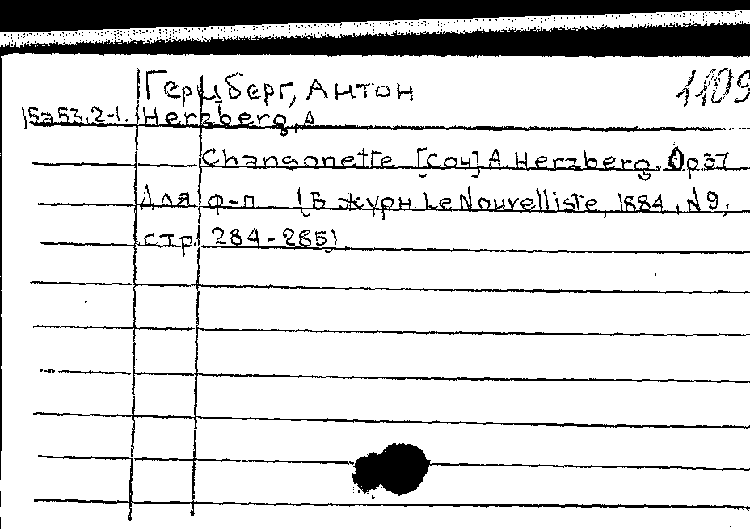 Герцберг, Антон 1109
15а53.2-1. Herzberg, A
Chansonette [Соч] A. Herzberg. Op 37
Для ф-п (В журн Le Nouvelliste, 1884, N 9,
стр 284-285)